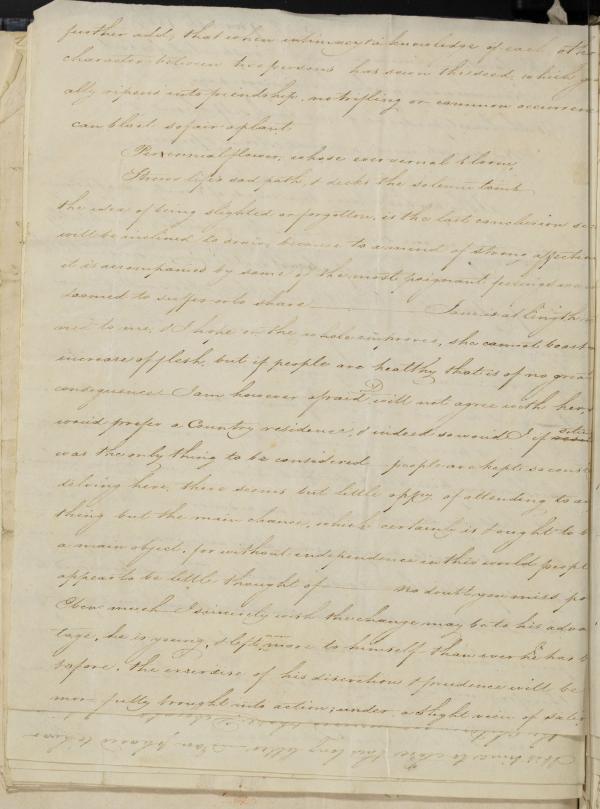 further add, that when intimacy & knowledge of each othe
character between two persons has sown the seed, which
ally ripens into friendship, no trifling or common occurren
can blast so fair a plant.
Perennial flower, whose ever vernal bloom,
Strews life's sad path, & decks the solemn tomb
the idea of being slighted or forgotten, is the last conclusion
will be inclined to draw, because to a mind of strong affection
it is accompanied by some of the most poignant feelings
doomed to suffer or to share is at length
to me, & I hope on the whole improves, she cannot boast
increase of flesh, but if people are healthy that is of no great
consequence I am however afraid D will not agree with her,
would prefer a Country residence, & indeed so would I if
was the only thing to be considered people are kept so
delving here, there seems but little oppy of attending to
thing but the main chance, which certainly is & ought to b
a main object. for without independence in this world peopl
appear to be little thought of no doubt you miss
Eben much I sincerely wish the change may be to his adva
tage, he is young, & left more to himself than ever he has b
before. the exercise of his discretion & prudence will be
more fully brought into action; under a slight view of
this long letter I am pleased to hear